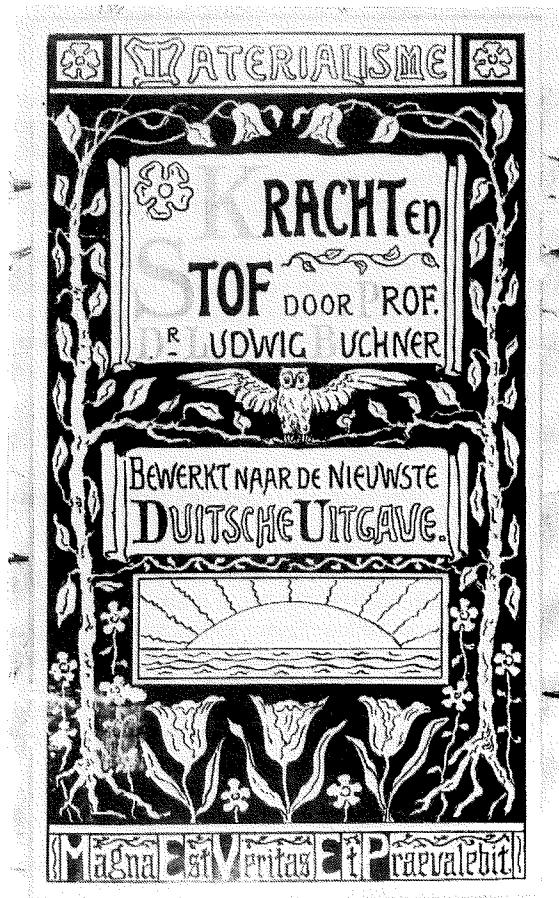 MATERIALISME
KRACHT en
STOF DOOR PROF.
DR LUDWIG BUCHNER
BEWERKT NAAR DE NIEUWSTE
DUITSCHE UITGAVE.
Magna Est Veritas Et Praevalebit